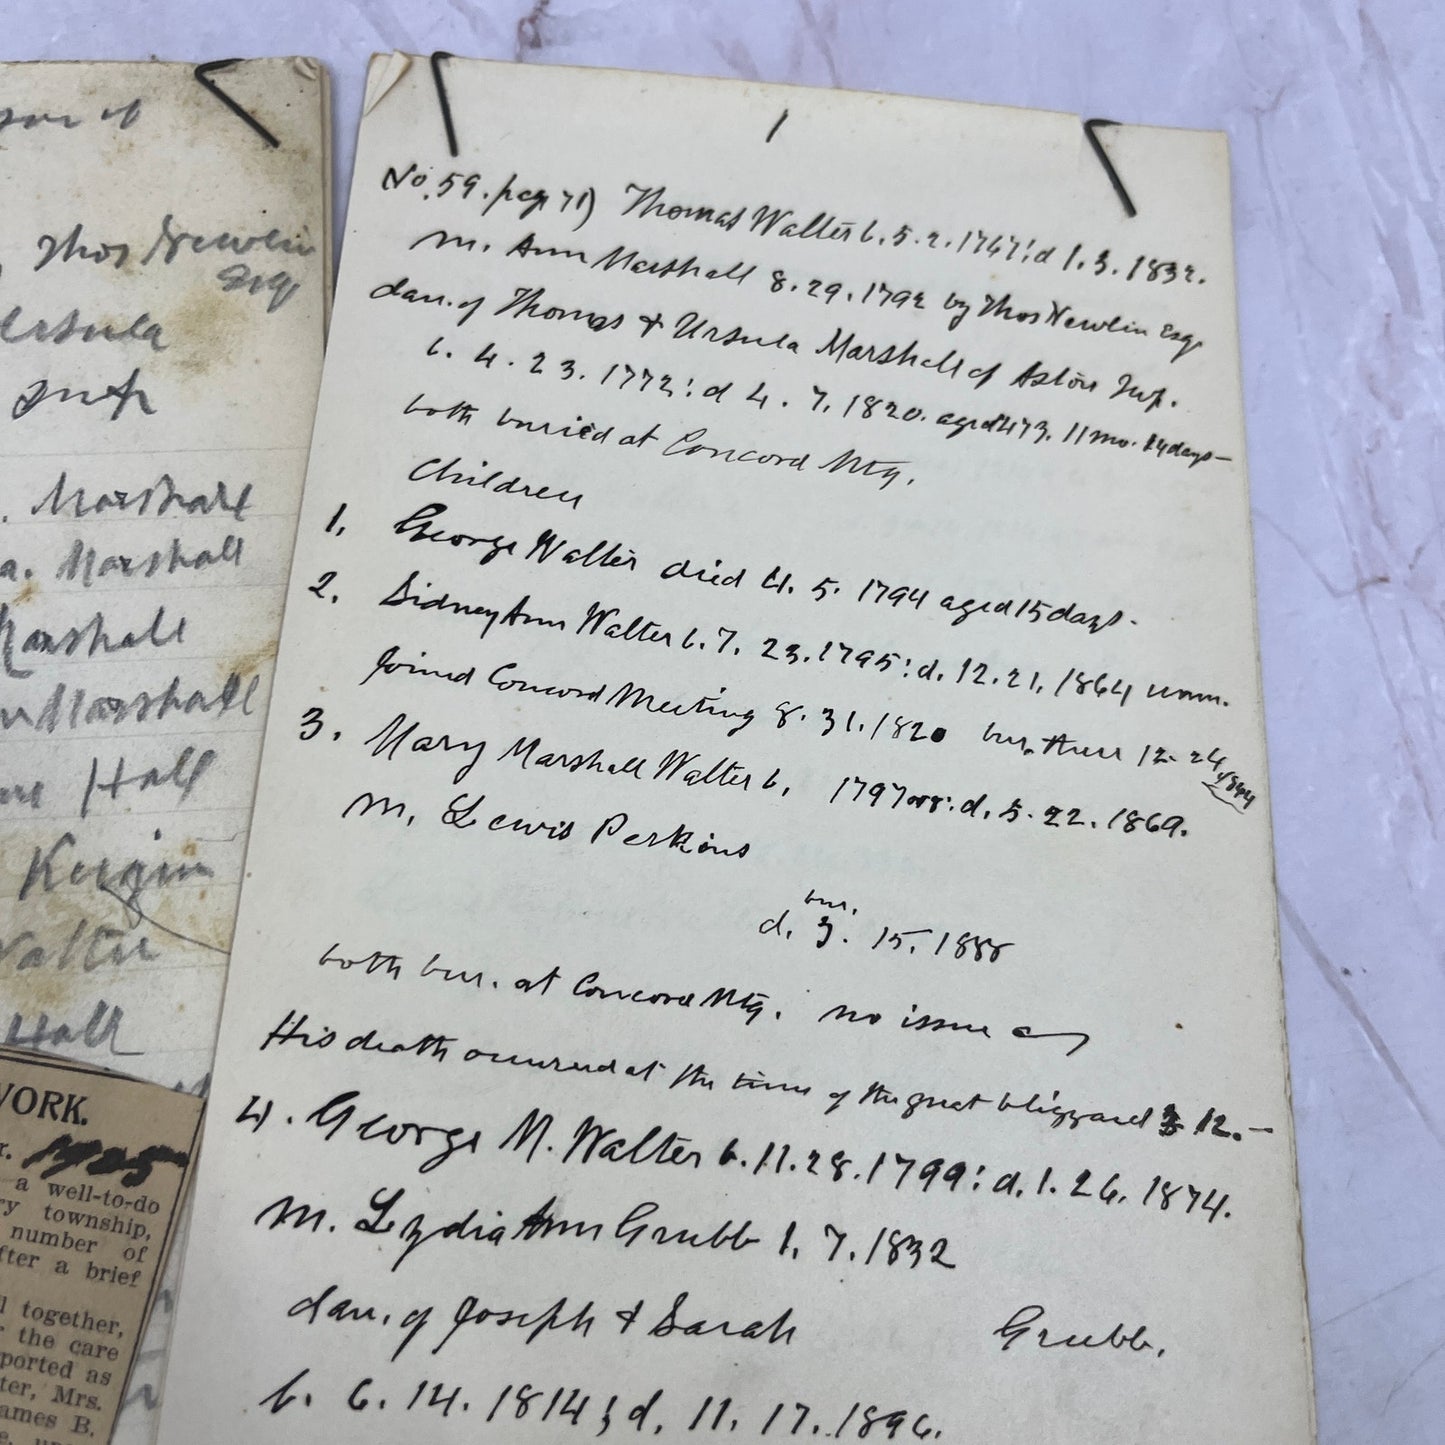 Thos Newlin
Esq
Ursula
Marshall
a. Marshall
Marshall
Marshall
Hall
Walter
Hall
WORK.
1925
a well-to-do
ry township,
number of
fter a brief
d together,
the care
ported as
ter, Mrs.
ames B.
1
No. 59. page 71) Thomas Walter b. 5. 2. 1767: d 1. 3. 1832.
m. Ann Marshall 8. 29. 1792 by Thos Newlin Esq
dau. of Thomas & Ursula Marshall of Aston Twp.
b. 4. 23. 1772: d 4. 7. 1820. aged 47 11 mo. 14 days—
both buried at Concord Mtg.
Children
1. George Walter died 4. 5. 1794 aged 15 days.
2. Sidney Ann Walter b. 7. 23. 1795: d. 12. 21. 1864 unm.
Joined Concord Meeting 8. 31. 1820 bur. there 12- 24, 1864
3. Mary Marshall Walter b. 1797 or 8: d. 5. 22. 1869.
m. Lewis Perkins
bur.
d. 3. 15. 1888
both bur. at Concord Mtg. no issue
His death occurred at the time of the great blizzard 3 12.—
4. George M. Walter b. 11. 28. 1799: d. 1. 26. 1874.
m. Lydia Ann Grubb 1. 7. 1832
dau. of Joseph & Sarah Grubb.
b. 6. 14. 1814; d. 11. 17. 1896.